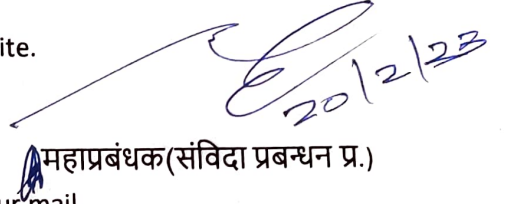 ite.
20/2/23
महाप्रबंधक(संविदा प्रबन्धन प्र.)
ur mail